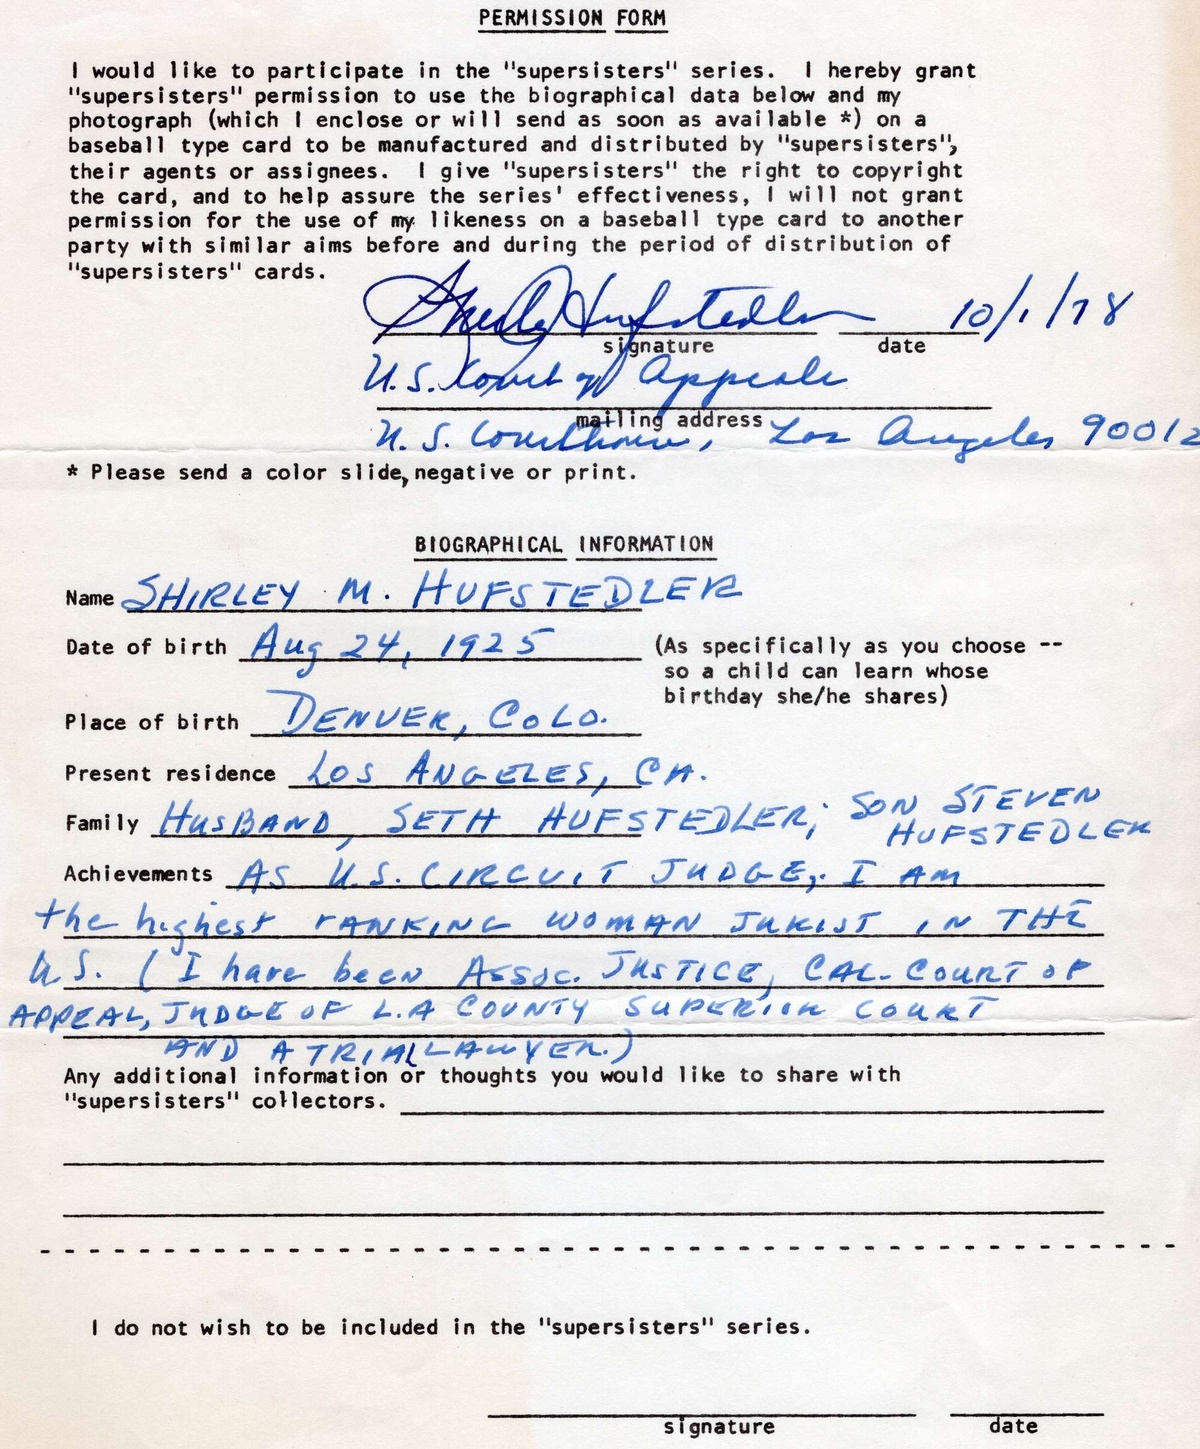 PERMISSION FORM
I would like to participate in the "supersisters" series. I hereby grant
"supersisters" permission to use the biographical data below and my
photograph (which I enclose or will send as soon as available *) on a
baseball type card to be manufactured and distributed by "supersisters",
their agents or assignees. I give "supersisters" the right to copyright
the card, and to help assure the series' effectiveness, I will not grant
permission for the use of my likeness on a baseball type card to another
party with similar aims before and during the period of distribution of
"supersisters" cards.
Shirley Hufstedler 10/1/78
signature date
U.S. Court of Appeals
mailing address
U.S. Courthouse, Los Angeles 90012
* Please send a color slide, negative or print.
BIOGRAPHICAL INFORMATION
Name SHIRLEY M. HUFSTEDLER
Date of birth Aug 24, 1925 (As specifically as you choose --
so a child can learn whose
birthday she/he shares)
Place of birth DENVER, COLO.
Present residence LOS ANGELES, CA.
Family HUSBAND, SETH HUFSTEDLER; SON STEVEN
HUFSTEDLER
Achievements AS U.S. CIRCUIT JUDGE, I AM
the highest RANKING WOMAN JURIST IN THE
U.S. (I have been Assoc. JUSTICE, CAL. COURT OF
APPEAL, JUDGE OF L.A COUNTY SUPERIOR COURT
AND A TRIAL LAWYER.)
Any additional information or thoughts you would like to share with
"supersisters" collectors.
I do not wish to be included in the "supersisters" series.
signature date